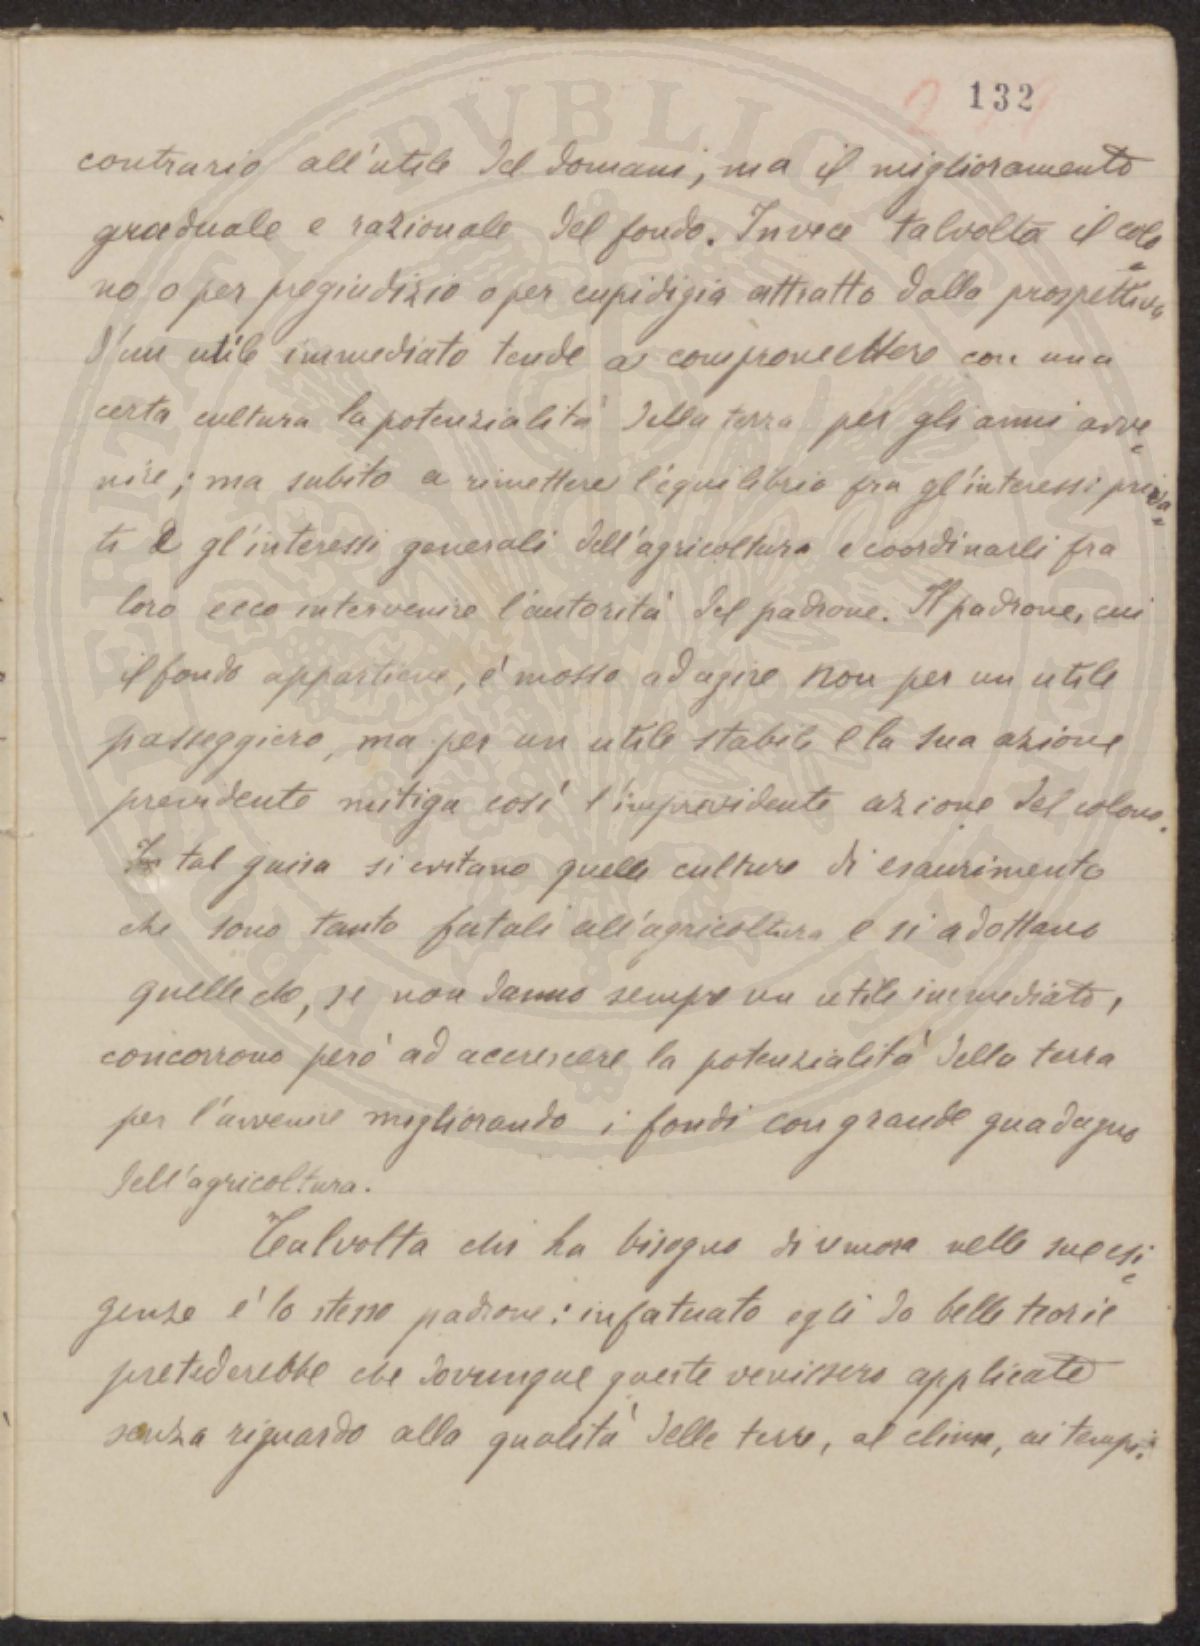 132
contrario all'utile del domani; ma il miglioramento
graduale e razionale del fondo. Invece talvolta il colo=
no o per pregiudizio o per cupidigia attratto dalla prospettiva
d'un utile immediato tende a compromettere con una
certa cultura la potenzialità della terra per gli anni avve=
nire; ma subito a rimettere l'equilibrio fra gl'interessi priva=
ti e gl'interessi generali dell'agricoltura e coordinarli fra
loro ecco intervenire l'autorità del padrone. Il padrone, cui
il fondo appartiene, é mosso ad agire non per un utile
passeggiero, ma per un utile stabile e la sua azione
previdente mitiga così l'imprevidente azione del colono.
In tal guisa si evitano quelle culture di esaurimento
che sono tanto fatali all'agricoltura e si adottano
quelle che, se non danno sempre un utile immediato,
concorrono però ad accrescere la potenzialità della terra
per l'avvenire migliorando i fondi con grande guadagno
dell'agricoltura.
Talvolta chi ha bisogno di remora nelle sue esi=
genze é lo stesso padrone: infatuato egli da belle teorie
pretederebbe che dovunque queste venissero applicate
senza riguardo alla qualità delle terre, al clima, ai tempi.
PVBLICAE